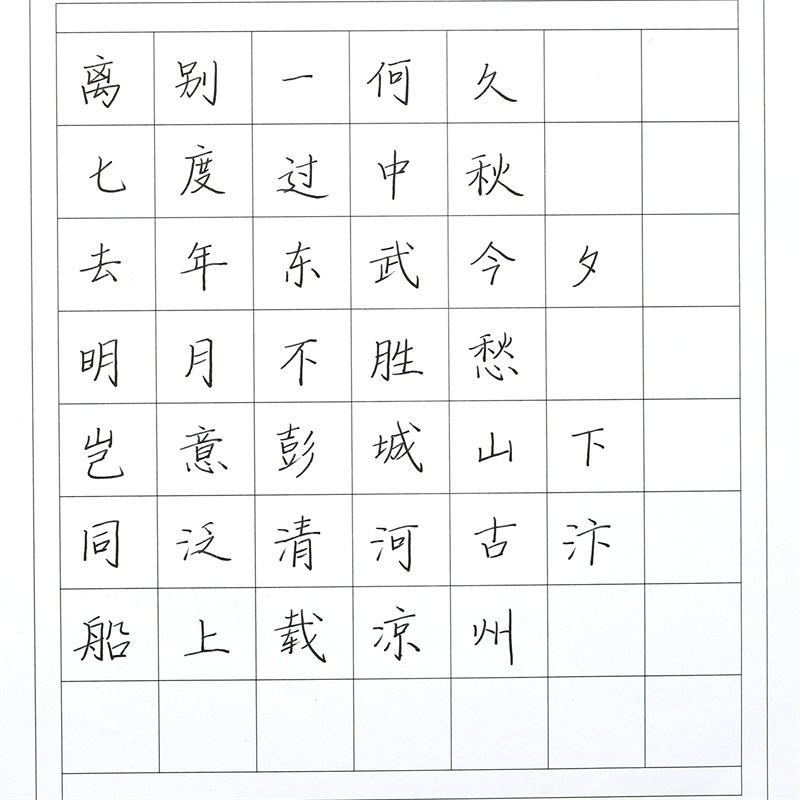 离别一何久
七度过中秋
去年东武今夕
明月不胜愁
岂意彭城山下
同泛清河古汴
船上载凉州